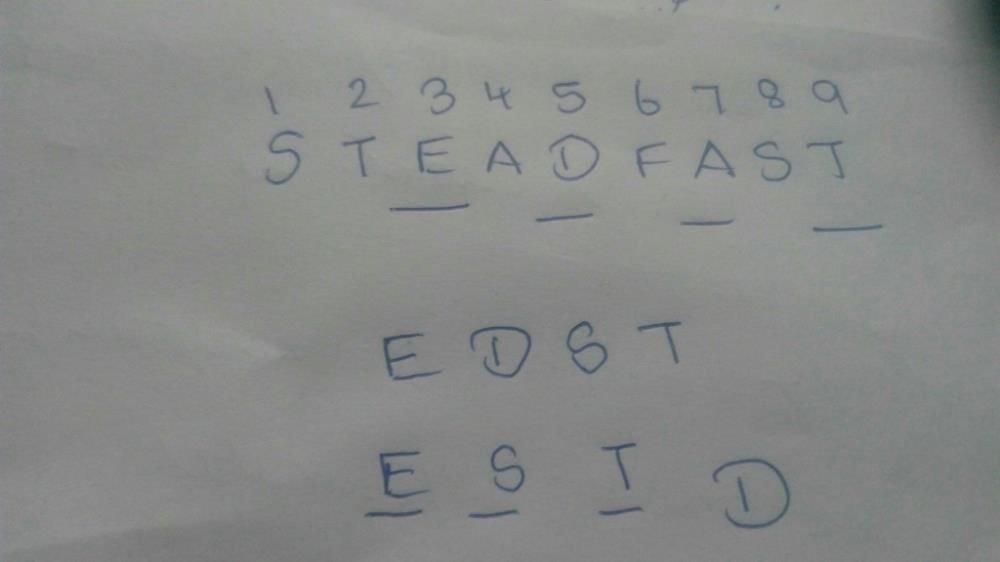 1 2 3 4 5 6 7 8 9
S T E A D F A S T
E D S T
E S T D